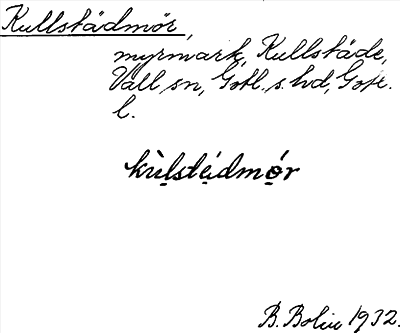 Kullstädmör,
myrmark, Kullstäde,
Vall sn, Gotl. s. hd, Gotl.
l.
kùlstẹ́dmọ́r
B. Bolin 1932.